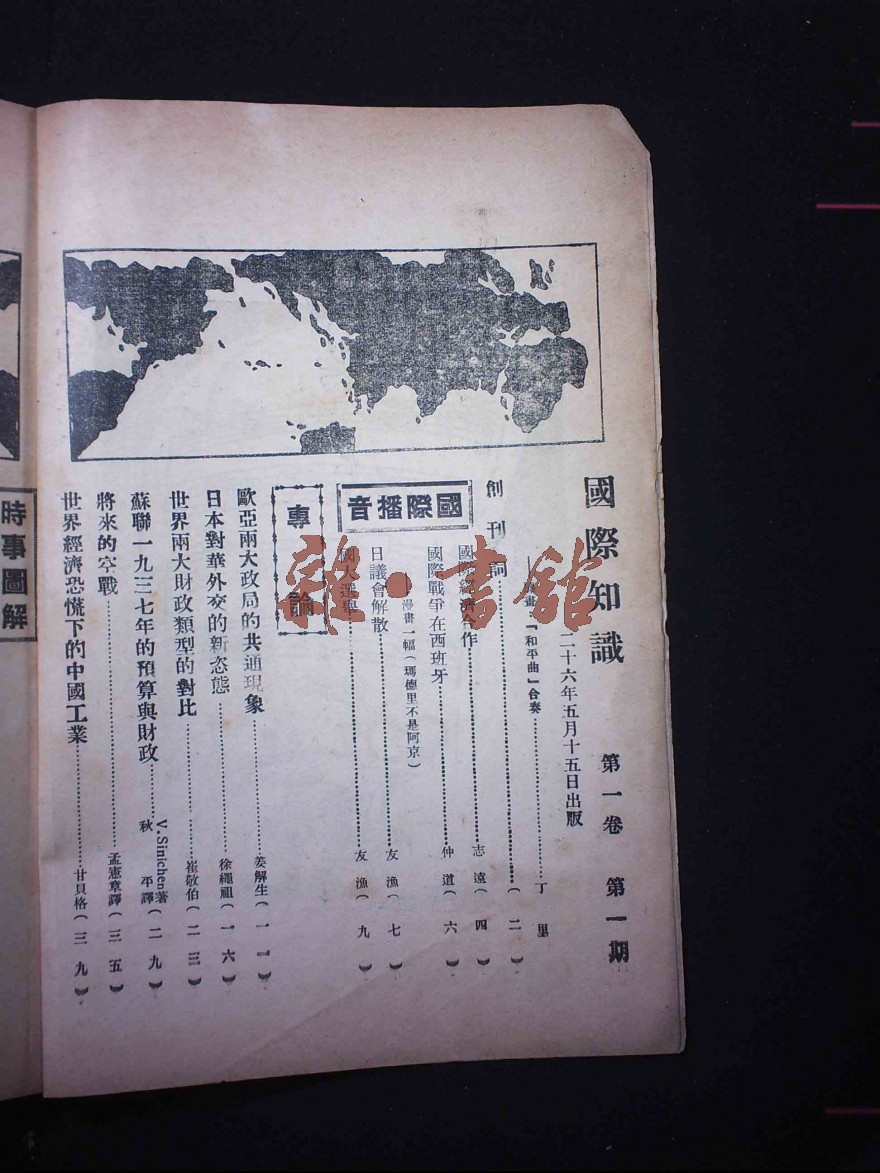 國際知識 第一卷 第一期
二十六年五月十五日出版
「和平曲」合奏……丁里
創刊詞……(二)
國際播音
國際經濟合作……志遠(四)
國際戰爭在西班牙……仲道(六)
漫畫一幅(瑪德里不是阿京)
日議會解散……友漁(七)
國大選舉……友漁(九)
專論
歐亞兩大政局的共通現象……姜解生(一一)
日本對華外交的新姿態……徐繩祖(一六)
世界兩大財政類型的對比……崔敬伯(二三)
蘇聯一九三七年的預算與財政……V. Sinichen著 秋平譯(二九)
將來的空戰……孟憲章譯(三五)
世界經濟恐慌下的中國工業……甘貝格(三九)
時事圖解
雜·書館